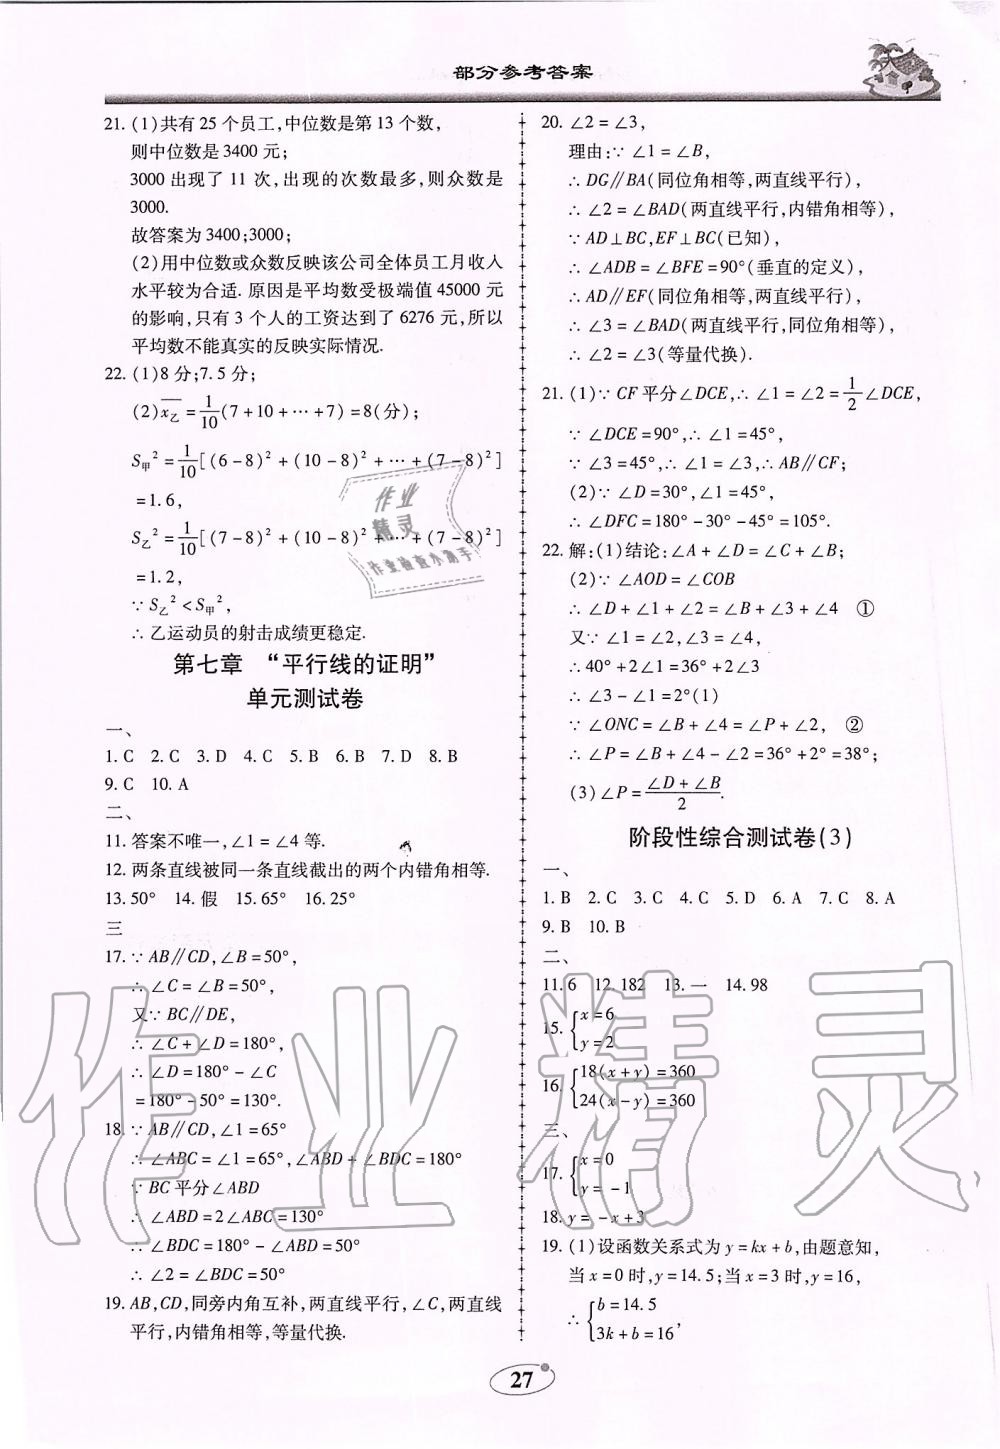 部分参考答案
21. (1)共有 25 个员工,中位数是第 13 个数,
则中位数是 3400 元;
3000 出现了 11 次,出现的次数最多,则众数是
3000.
故答案为 3400;3000;
(2)用中位数或众数反映该公司全体员工月收入
水平较为合适. 原因是平均数受极端值 45000 元
的影响,只有 3 个人的工资达到了 6276 元,所以
平均数不能真实的反映实际情况.
22. (1)8 分;7.5 分;
(2)x乙 = 1/10(7+10+…+7)=8(分);
S甲² = 1/10[(6-8)²+(10-8)²+…+(7-8)²]
=1.6,
S乙² = 1/10[(7-8)²+(10-8)²+…+(7-8)²]
=1.2,
∵ S乙²<S甲²,
∴ 乙运动员的射击成绩更稳定.
第七章 “平行线的证明”
单元测试卷
一、
1. C 2. C 3. D 4. C 5. B 6. B 7. D 8. B
9. C 10. A
二、
11. 答案不唯一,∠1=∠4 等.
12. 两条直线被同一条直线截出的两个内错角相等.
13. 50° 14. 假 15. 65° 16. 25°
三
17. ∵ AB∥CD,∠B=50°,
∴ ∠C=∠B=50°,
又∵ BC∥DE,
∴ ∠C+∠D=180°,
∴ ∠D=180°-∠C
=180°-50°=130°.
18. ∵ AB∥CD,∠1=65°
∴ ∠ABC=∠1=65°,∠ABD+∠BDC=180°
∵ BC 平分∠ABD
∴ ∠ABD=2∠ABC=130°
∴ ∠BDC=180°-∠ABD=50°
∴ ∠2=∠BDC=50°
19. AB,CD,同旁内角互补,两直线平行,∠C,两直线
平行,内错角相等,等量代换.
20. ∠2=∠3,
理由:∵ ∠1=∠B,
∴ DG∥BA(同位角相等,两直线平行),
∴ ∠2=∠BAD(两直线平行,内错角相等),
∵ AD⊥BC,EF⊥BC(已知),
∴ ∠ADB=∠BFE=90°(垂直的定义),
∴ AD∥EF(同位角相等,两直线平行),
∴ ∠3=∠BAD(两直线平行,同位角相等),
∴ ∠2=∠3(等量代换).
21. (1)∵ CF 平分∠DCE,∴ ∠1=∠2= 1/2 ∠DCE,
∵ ∠DCE=90°,∴ ∠1=45°,
∵ ∠3=45°,∴ ∠1=∠3,∴ AB∥CF;
(2)∵ ∠D=30°,∠1=45°,
∴ ∠DFC=180°-30°-45°=105°.
22. 解:(1)结论:∠A+∠D=∠C+∠B;
(2)∵ ∠AOD=∠COB
∴ ∠D+∠1+∠2=∠B+∠3+∠4 ①
又∵ ∠1=∠2,∠3=∠4,
∴ 40°+2∠1=36°+2∠3
∴ ∠3-∠1=2°(1)
∵ ∠ONC=∠B+∠4=∠P+∠2, ②
∴ ∠P=∠B+∠4-∠2=36°+2°=38°;
(3)∠P=(∠D+∠B)/2.
阶段性综合测试卷(3)
一、
1. B 2. C 3. C 4. C 5. D 6. A 7. C 8. A
9. B 10. B
二、
11. 6 12. 182 13. 一 14. 98
15. {x=6
y=2
16. {18(x+y)=360
24(x-y)=360
三、
17. {x=0
y=-1
18. y=-x+3
19. (1)设函数关系式为 y=kx+b,由题意知,
当 x=0 时,y=14.5;当 x=3 时,y=16,
∴ {b=14.5
3k+b=16,
27
作业
精灵
作业检查小助手
作业精灵